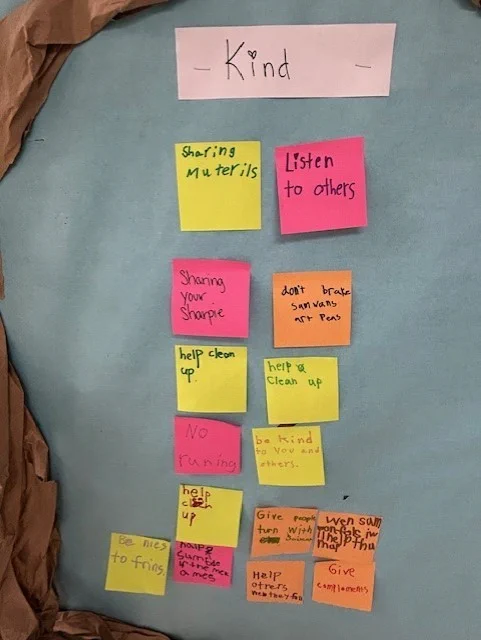 - Kind -
Sharing
Muterils
Listen
to others
Sharing
your
Sharpie
don't brake
sumvans
art Pens
help clean
up.
help
Clean up
No
runing
be kind
to You and
others.
help
up
Give people
turn With
Wen sum
help thu
Be nies
to frins,
sumbde
a mes
Help
others
Give
complements